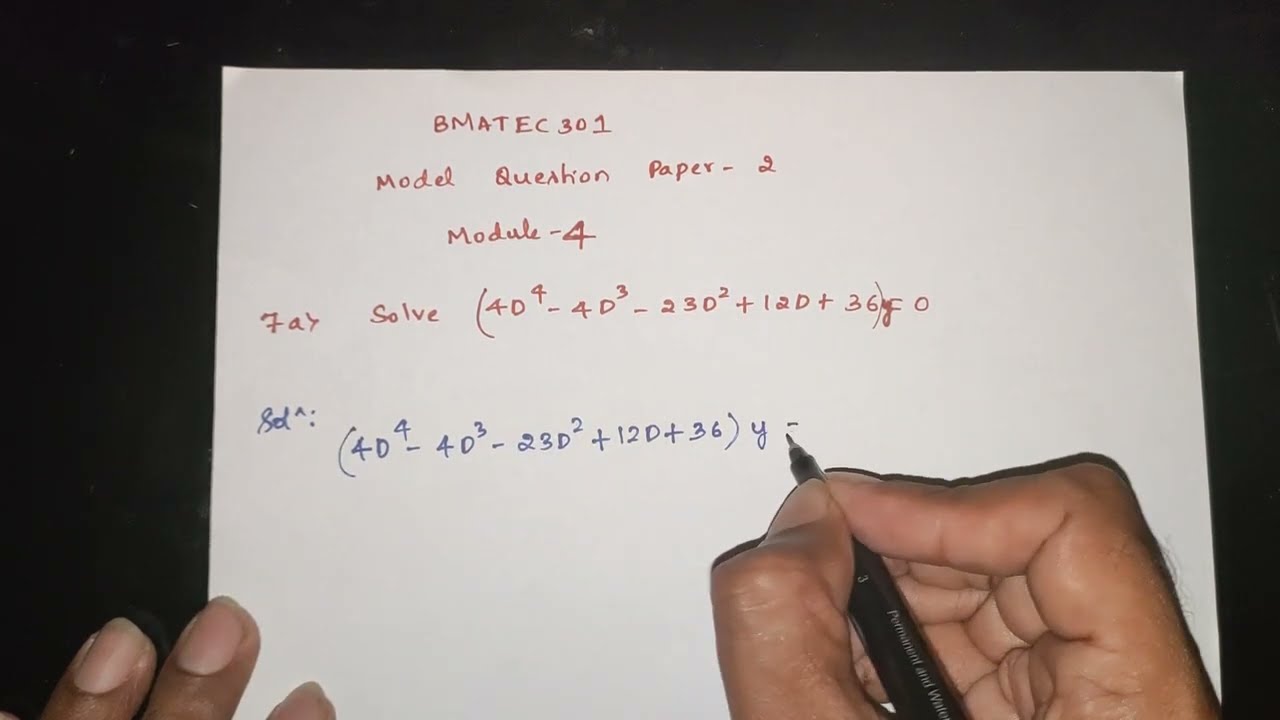 BMATEC 301
Model Question Paper - 2
Module - 4
7a> Solve (4D⁴ - 4D³ - 23D² + 12D + 36)y = 0
Solⁿ: (4D⁴ - 4D³ - 23D² + 12D + 36) y -
3 Permanent and Water